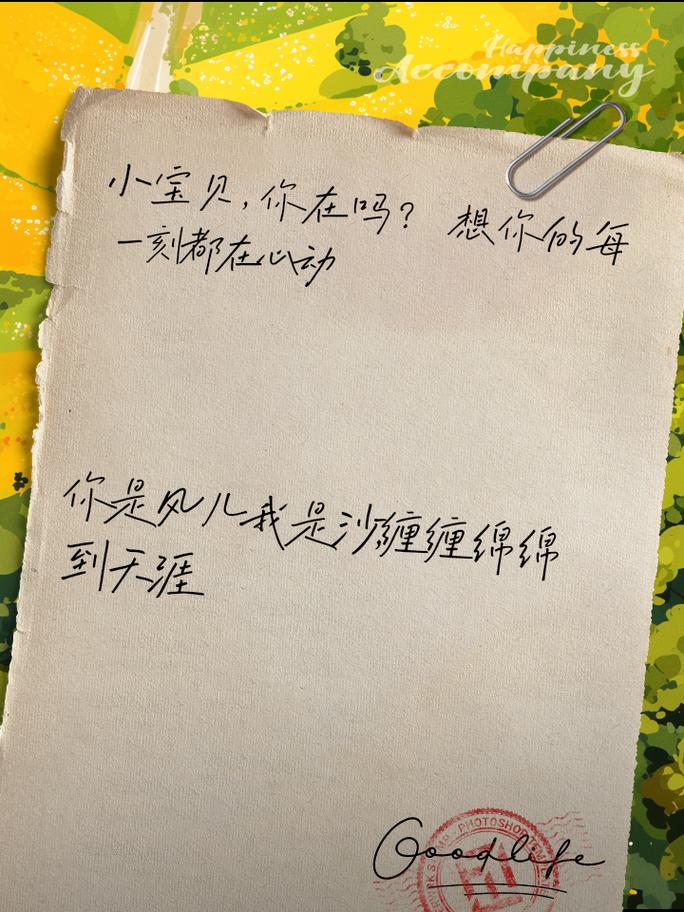 Happiness
Accompany
小宝贝,你在吗? 想你的每
一刻都在心动
你是风儿我是沙缠缠绵绵
到天涯
Goodlife